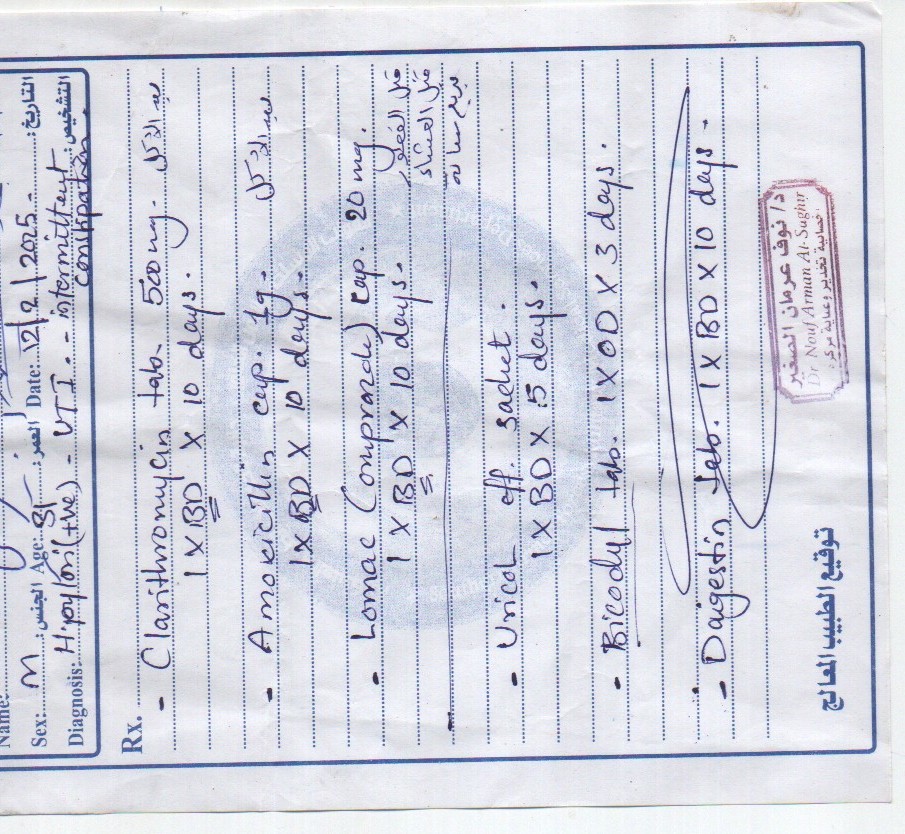 Name:
Sex: M الجنس: Age: 31 العمر: Date: 12/2/2025 التاريخ:
Diagnosis: H.pylori (+ve) - UTI. - intermittent constipation التشخيص:
Rx.
- Clarithromycin tab. 500mg. بعد الأكل
1 X BD X 10 days.
- Amoxicillin cap. 1g. بعد الأكل
1 X BD X 10 days.
- Lomac (omprazole) cap. 20 mg. قبل الفطور
1 X BD X 10 days. قبل العشاء
- Uricol eff. sachet.
1 X BD X 5 days.
- Bicodyl tab. 1 X OD X 3 days.
- Daigestin tab. 1 X BD X 10 days.
د/ نوف عرمان الصغير
Dr Nouf Arman Al-Sughir
توقيع الطبيب المعالج